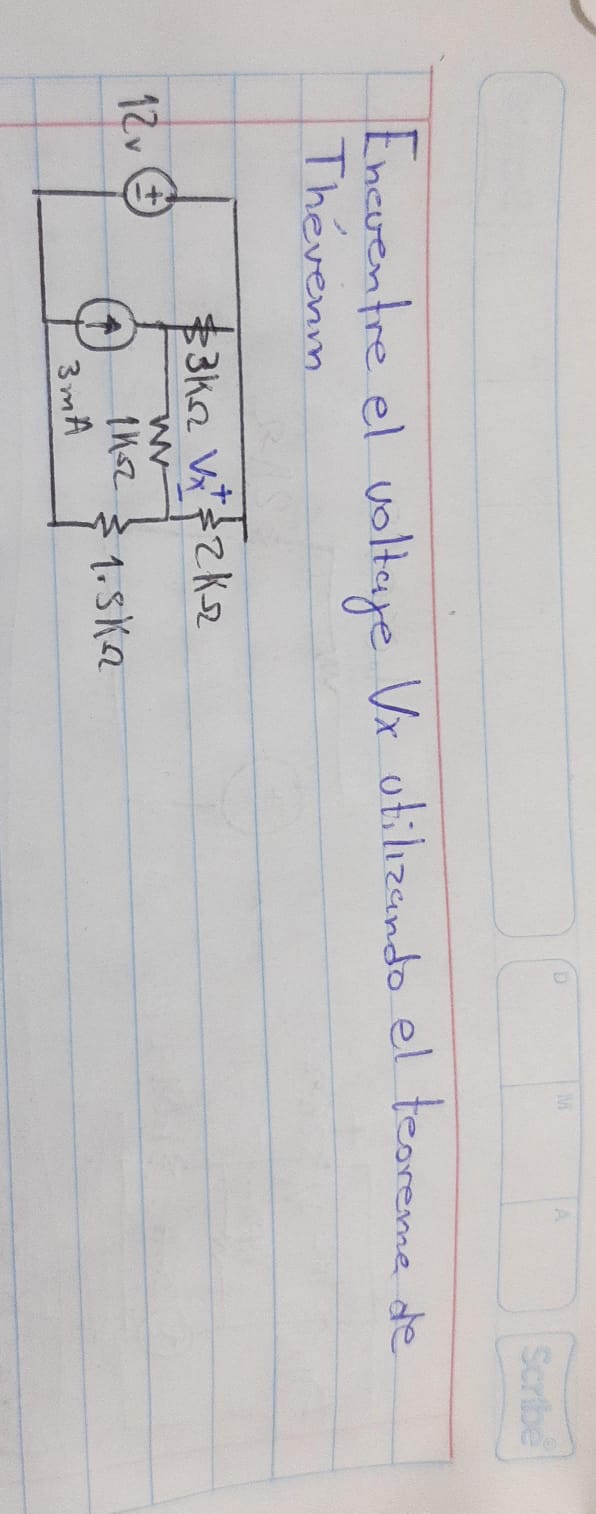 D M A
Scribe®
Encuentre el voltaje Vx utilizando el teorema de
Thévenin
12v
3kΩ
Vx
+
-
2kΩ
1kΩ
3mA
1.5kΩ